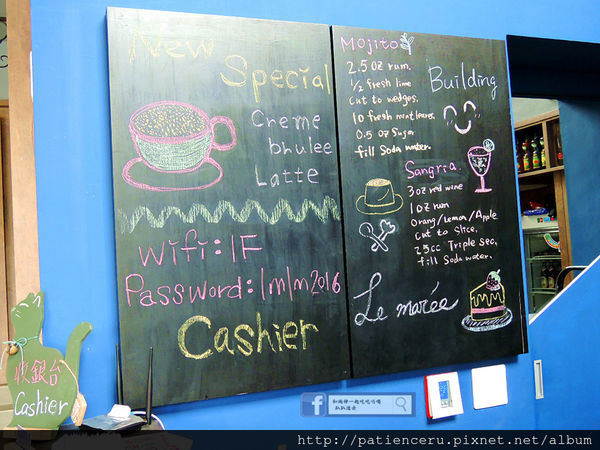 New
Special
Creme
bhulee
Latte
Wifi:1F
Password:1m1m2016
Cashier
Mojito
2.5 oz rum.
1/2 fresh lime
Cut to wedges.
10 fresh mint leaves.
0.5 oz Sugar
fill Soda water.
Building
Sangria.
3oz red wine
1oz rum
Orang/Lemon/Apple
cut to Slice.
25cc Triple sec,
fill Soda water.
Le marée
收銀台
Cashier
和我神一起吃吃喝喝
趴趴造去
http://patienceru.pixnet.net/album